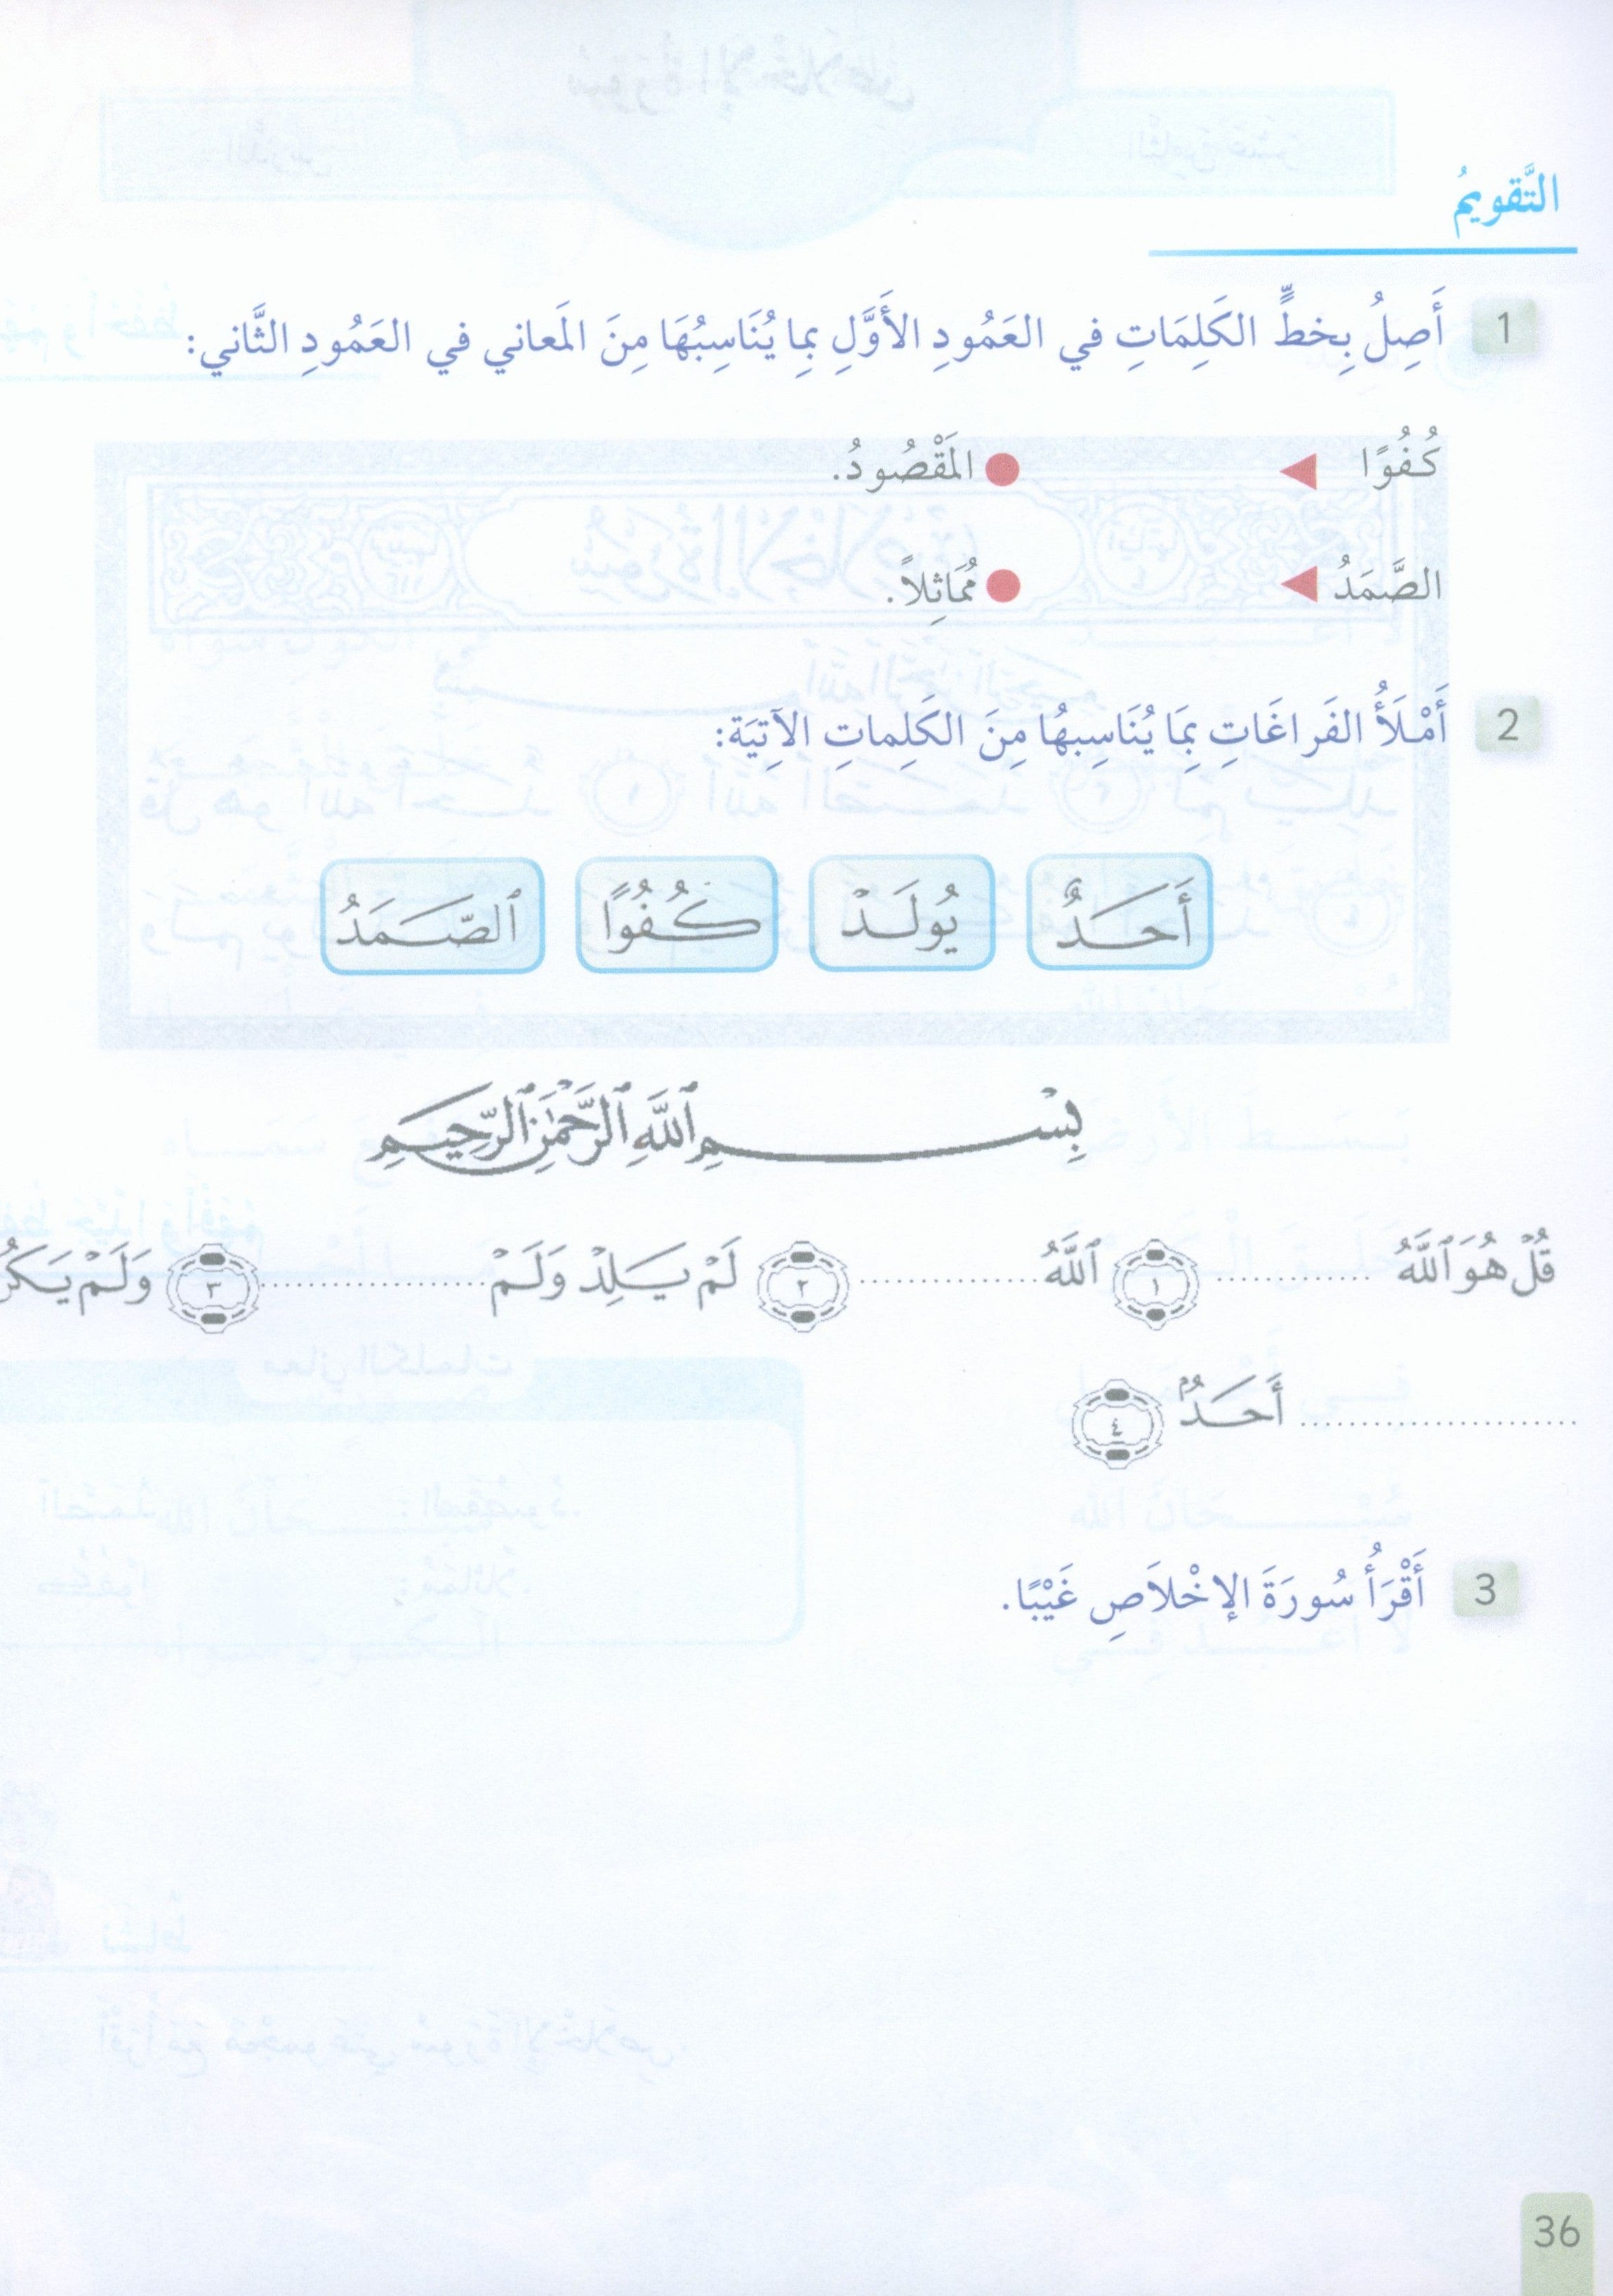 التَّقويمُ
1 أَصِلُ بِخطٍّ الكَلِمَاتِ في العَمُودِ الأَوَّلِ بِما يُنَاسِبُهَا مِنَ المَعاني في العَمُودِ الثَّاني:
كُفُوًا ◄ ● المَقْصُودُ.
الصَّمَدُ ◄ ● مُمَاثِلاً.
2 أَمْلَأُ الفَراغَاتِ بِمَا يُنَاسِبهُا مِنَ الكَلِماتِ الآتِيَة:
أَحَدٌ يُولَدْ كُفُوًا ٱلصَّمَدُ
بِسْمِ ٱللَّهِ ٱلرَّحْمَٰنِ ٱلرَّحِيمِ
قُلْ هُوَ ٱللَّهُ .............. ١ ٱللَّهُ ................ ٢ لَمْ يَلِدْ وَلَمْ .................... ٣ وَلَمْ يَكُن
......................... أَحَدٌ ٤
3 أَقْرَأُ سُورَةَ الإخْلاَصِ غَيْبًا.
36